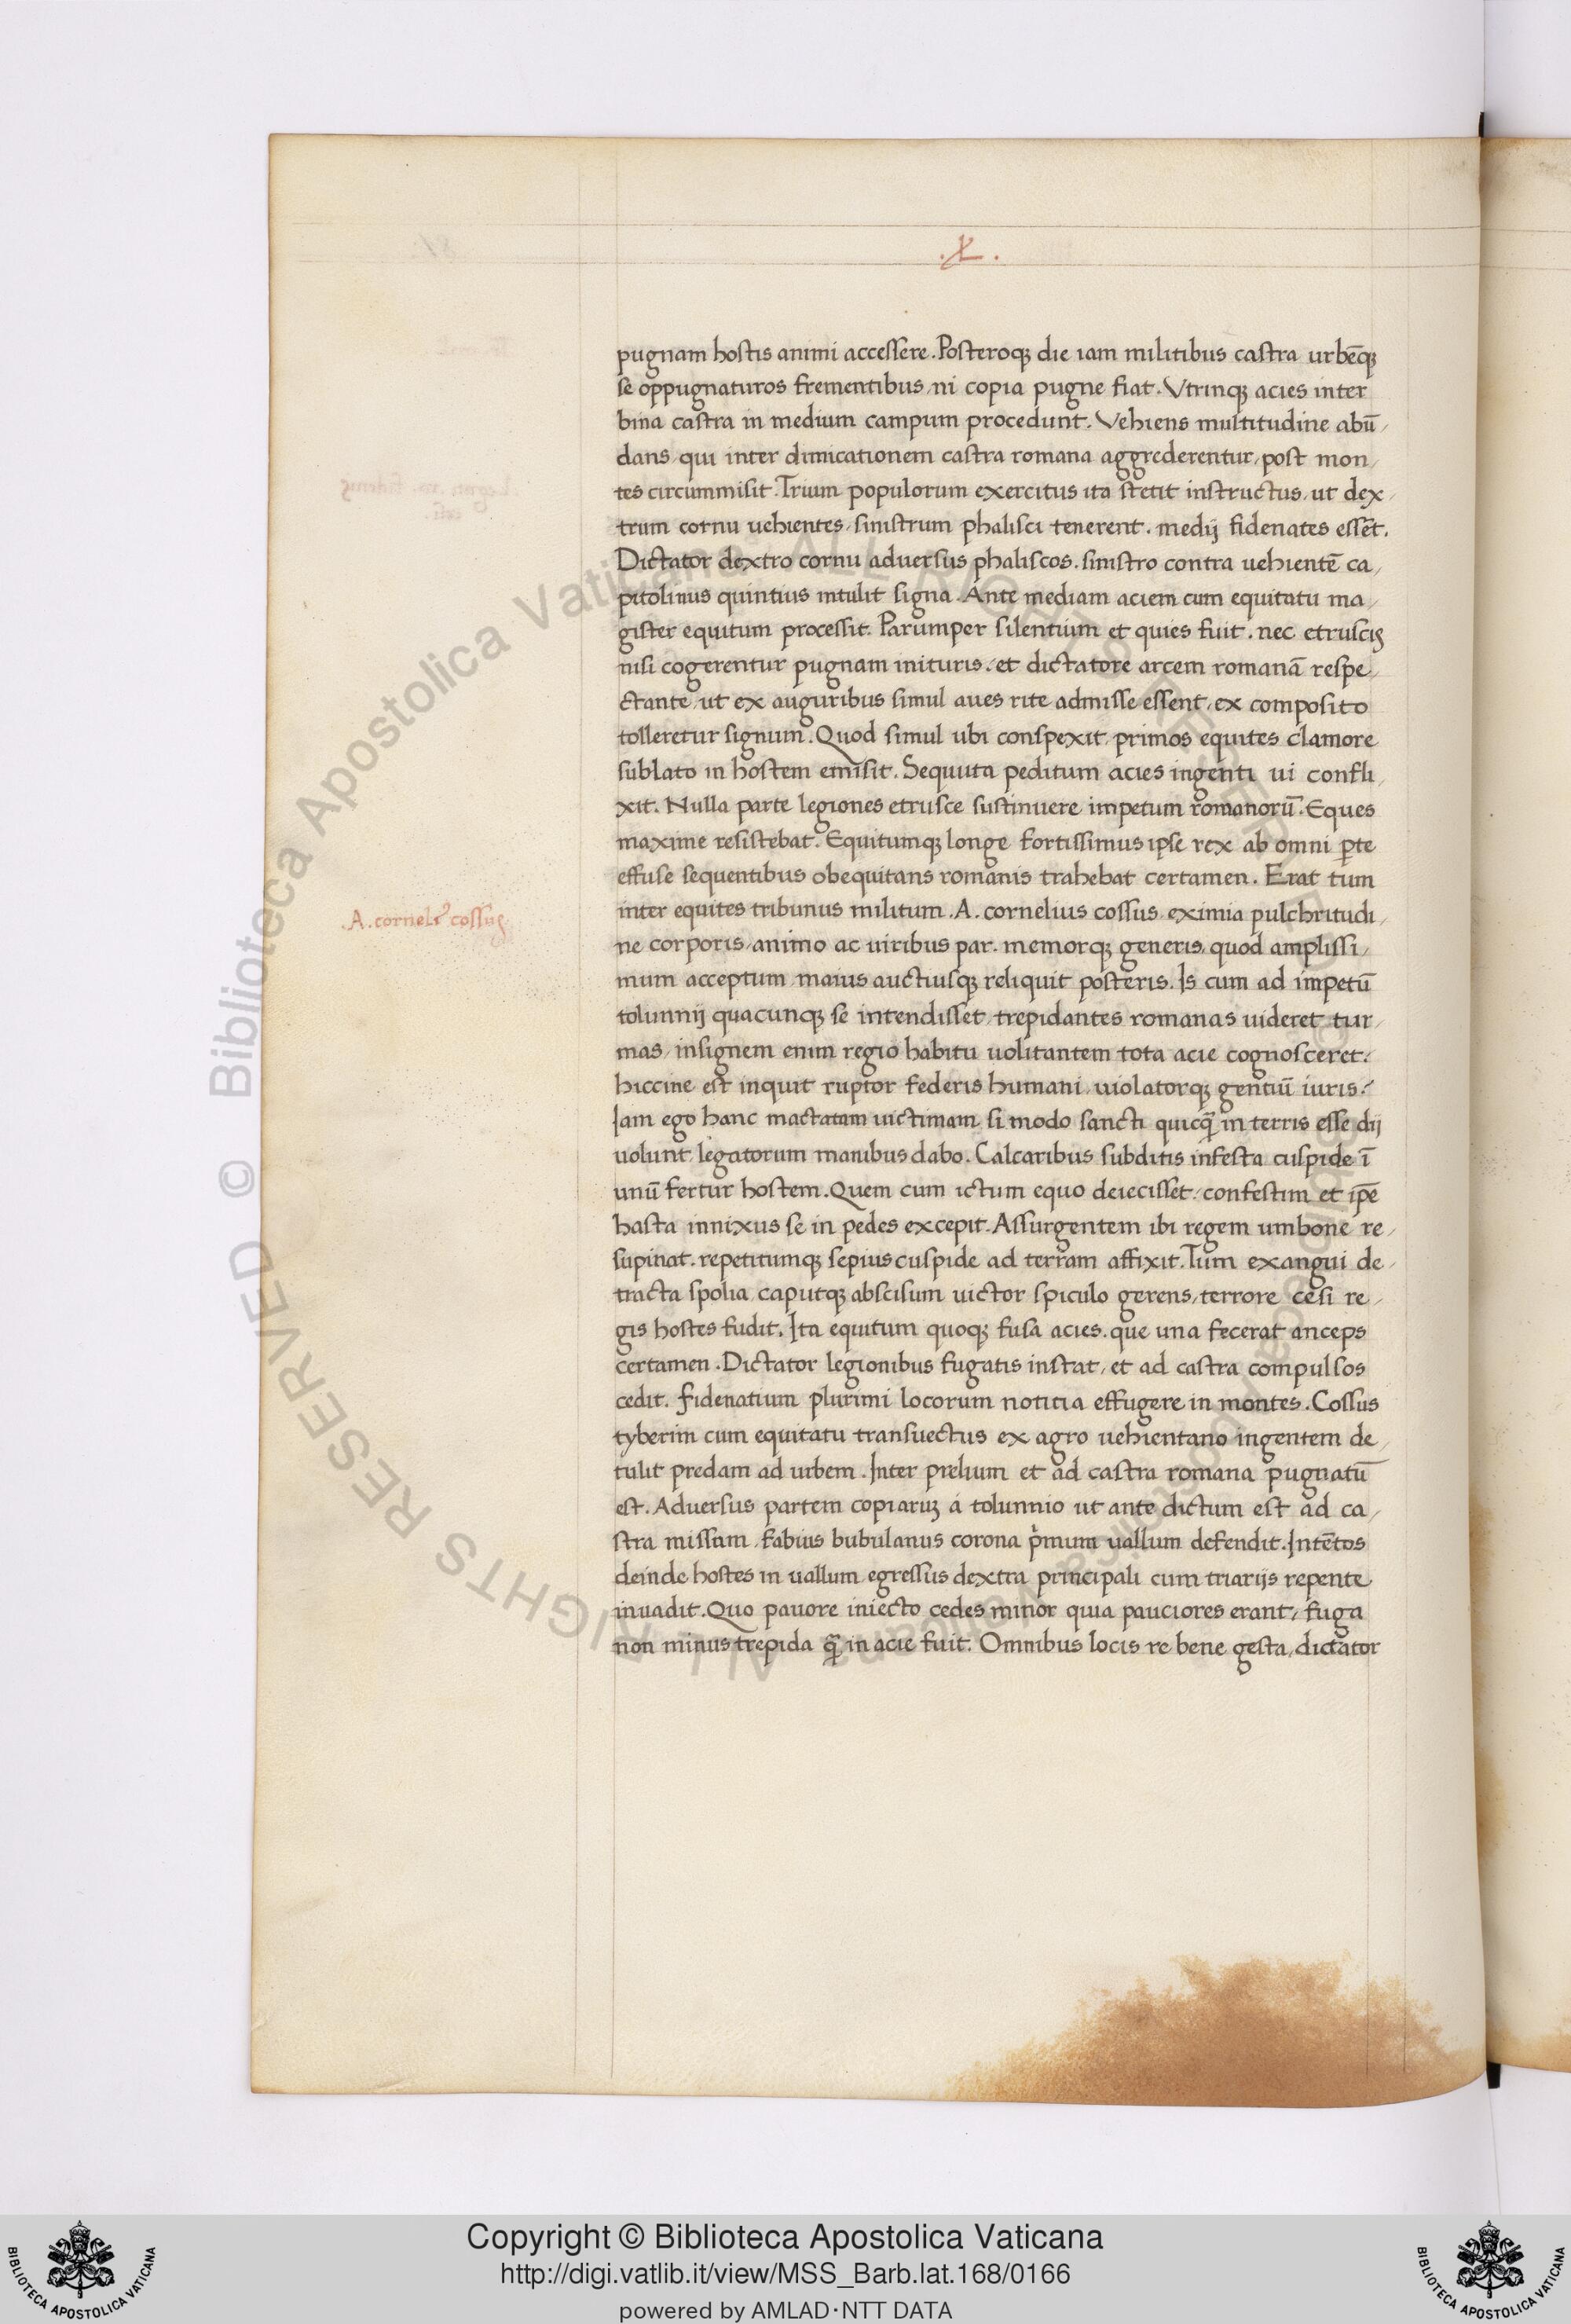 .X.
pugnam hostis animi accessere. Posteroqꝫ die iam militibus castra urbēqꝫ
se oppugnaturos frementibus, ni copia pugne fiat. Vtrinqꝫ acies inter
bina castra in medium campum procedunt. Vehiens multitudine abū,
dans, qui inter dimicationem castra romana aggrederentur, post mon,
tes circummisit. Trium populorum exercitus ita stetit instructus, ut dex,
trum cornu uehientes, sinistrum phalisci tenerent. medij fidenates essēt.
Dictator dextro cornu aduersus phaliscos. sinistro contra uehientē ca,
pitolinus quintius intulit signa. Ante mediam aciem cum equitatu ma,
gister equitum processit. Parumper silentium et quies fuit. nec etruscis
nisi cogerentur pugnam inituris. et dictatore arcem romanā respe,
ctante, ut ex auguribus simul aues rite admisse essent, ex composito
tolleretur signum. Quod simul ubi conspexit, primos equites clamore
sublato in hostem emisit. Sequuta peditum acies ingenti ui confli,
xit. Nulla parte legiones etrusce sustinuere impetum romanorū. Eques
maxime resistebat. Equitumqꝫ longe fortissimus ipse rex ab omni ꝑte
effuse sequentibus obequitans romanis trahebat certamen. Erat tum
inter equites tribunus militum. A. cornelius cossus, eximia pulchritudi,
.A. cornelꝰ cossus
ne corporis, animo ac uiribus par. memorqꝫ generis, quod amplissi,
mum acceptum, maius auctiusqꝫ reliquit posteris. Is cum ad impetū
tolumnij quacunqꝫ se intendisset, trepidantes romanas uideret tur,
mas, insignem enim regio habitu uolitantem tota acie cognosceret.
hiccine est inquit ruptor federis humani, uiolatorqꝫ gentiū iuris?
Iam ego hanc mactatam uictimam, si modo sancti quicq̄ in terris esse dij
uolunt, legatorum manibus dabo. Calcaribus subditis infesta cuspide ī
unū fertur hostem. Quem cum ictum equo deiecisset, confestim et ip̄e
hasta innixus se in pedes excepit. Assurgentem ibi regem umbone re,
supinat. repetitumqꝫ sepius cuspide ad terram affixit. Tum exangui de,
tracta spolia, caputqꝫ abscisum uictor spiculo gerens, terrore cesi re,
gis hostes fudit. Ita equitum quoqꝫ fusa acies. que una fecerat anceps
certamen. Dictator legionibus fugatis instat, et ad castra compulsos
cedit. Fidenatium plurimi locorum notitia effugere in montes. Cossus
tyberim cum equitatu transuectus ex agro uehientano ingentem de,
tulit predam ad urbem. Inter prelium et ad castra romana pugnatū
est. Aduersus partem copiarꝫ á tolunnio ut ante dictum est ad ca,
stra missam, fabius bubulanus corona pͥmum uallum defendit. Intētos
deinde hostes in uallum, egressus dextra principali cum triarijs repente
inuadit. Quo pauore iniecto cedes minor quia pauciores erant, fuga
non minus trepida q̄ in acie fuit. Omnibus locis re bene gesta, dictator
© Biblioteca Apostolica Vaticana ALL RIGHTS RESERVED
Copyright © Biblioteca Apostolica Vaticana
http://digi.vatlib.it/view/MSS_Barb.lat.168/0166
powered by AMLAD·NTT DATA
BIBLIOTECA APOSTOLICA VATICANA
BIBLIOTECA APOSTOLICA VATICANA